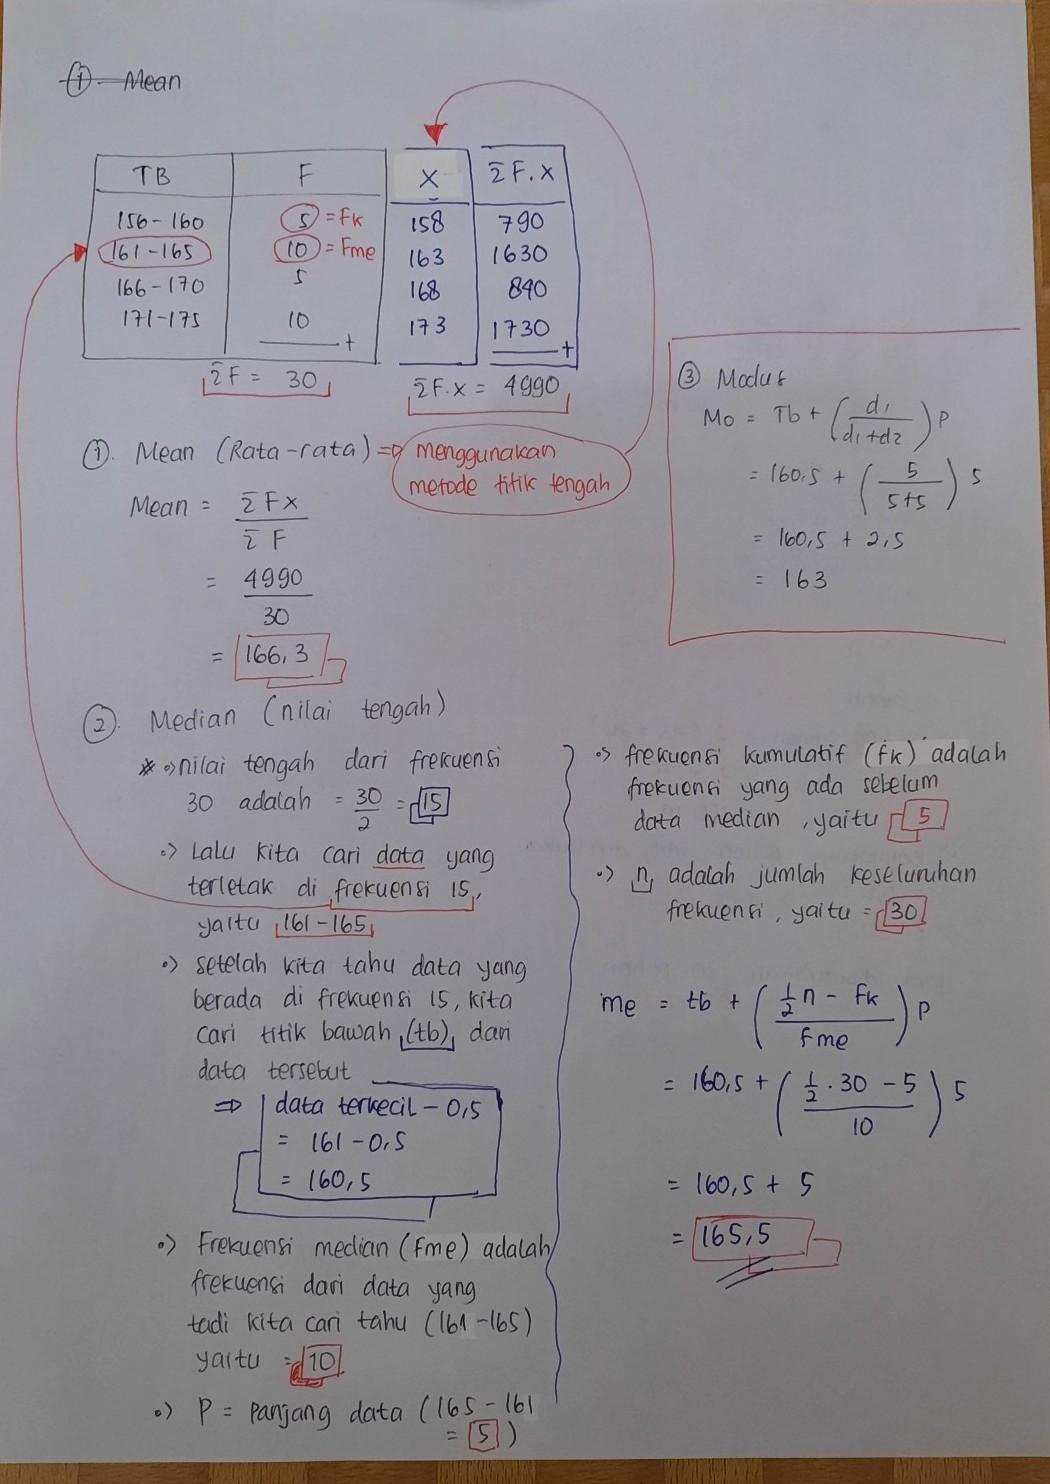 ① Mean
TB F X ΣF.X
156-160 5 = Fk 158 790
161-165 10 = Fme 163 1630
166-170 5 168 840
171-175 10 173 1730
+ +
ΣF = 30 ΣF.X = 4990
①. Mean (Rata-rata) => menggunakan
metode titik tengah
Mean = ΣFX
Σ F
= 4990
30
= 166,3
③ Modus
Mo = Tb + (d1 / d1+d2) P
= 160,5 + (5 / 5+5) 5
= 160,5 + 2,5
= 163
②. Median (nilai tengah)
* •> nilai tengah dari frekuensi
30 adalah = 30/2 = 15
•> Lalu kita cari data yang
terletak di frekuensi 15,
yaitu 161-165
•> setelah kita tahu data yang
berada di frekuensi 15, kita
cari titik bawah (tb) dari
data tersebut
=> data terkecil - 0,5
= 161 - 0,5
= 160,5
•> Frekuensi median (fme) adalah
frekuensi dari data yang
tadi kita cari tahu (161-165)
yaitu = 10
•> P = panjang data (165-161
= 5)
•> frekuensi kumulatif (fk) adalah
frekuensi yang ada sebelum
data median, yaitu 5
•> n adalah jumlah keseluruhan
frekuensi, yaitu = 30
me = tb + (½n - Fk / Fme) P
= 160,5 + (½ . 30 - 5 / 10) 5
= 160,5 + 5
= 165,5